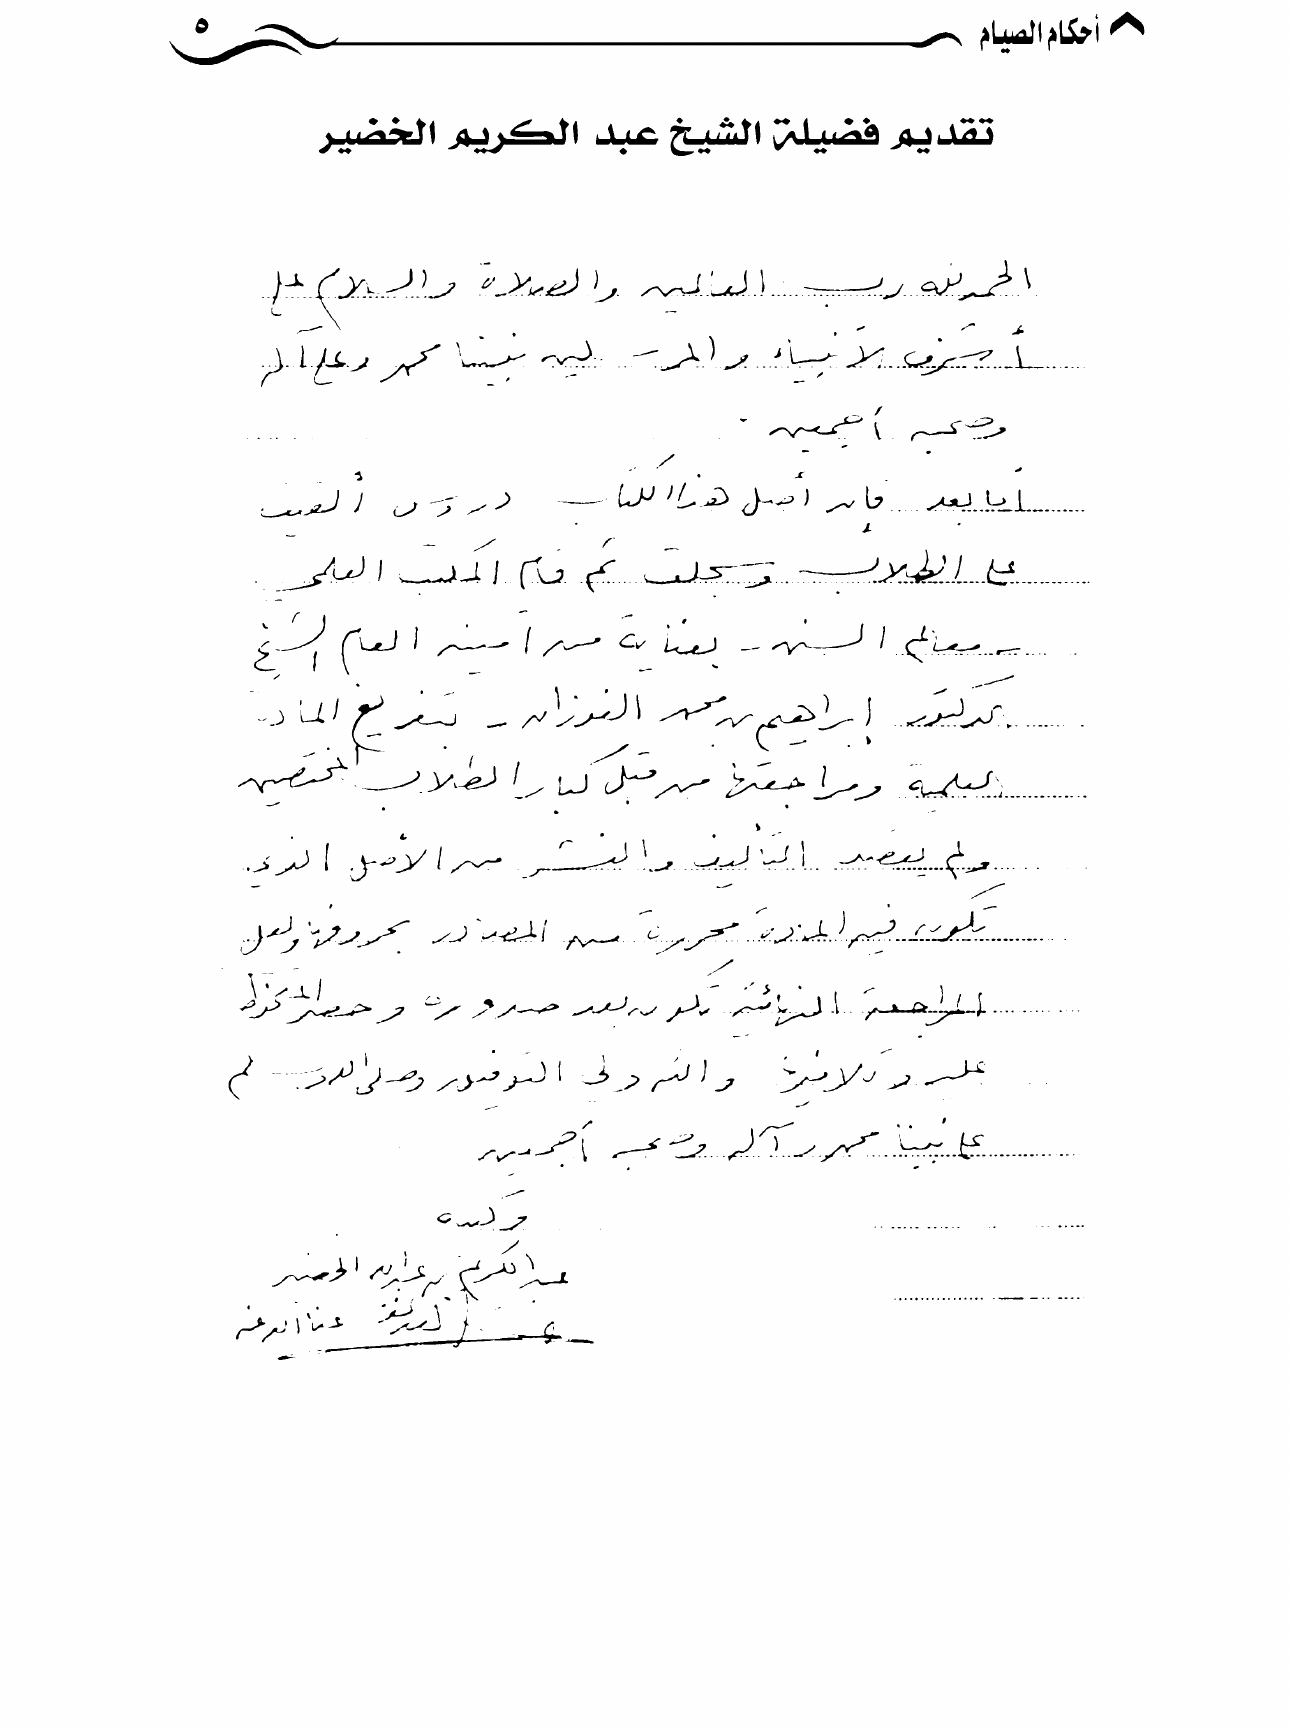 أحكام الصيام
٥
تقديم فضيلة الشيخ عبد الكريم الخضير
الحمد لله رب العالمين والصلاة والسلام على
أشرف الأنبياء والمرسلين نبينا محمد وعلى آله
وصحبه أجمعين.
أما بعد فإن أصل هذا الكتاب دروس ألقيت
على الطلاب وسجلت ثم قام المكتب العلمي
- معالم السنن - بعناية من أمينه العام الشيخ
الدكتور إبراهيم بن محمد الفوزان - بتفريغ المادة
العلمية ومراجعتها من قبل كبار الطلاب المختصين
ولم يقصد التأليف والنشر من الأصل الذي
تكون فيه المادة محررة من المصادر بحروفها ولعل
المراجعة النهائية تكون بعد صدوره وحصر الملحوظ
عليه وتلافيها والله ولي التوفيق وصلى الله وسلم
على نبينا محمد وآله وصحبه أجمعين
وكتبه
عبد الكريم بن عبد الله الخضير
عفا الله عنه